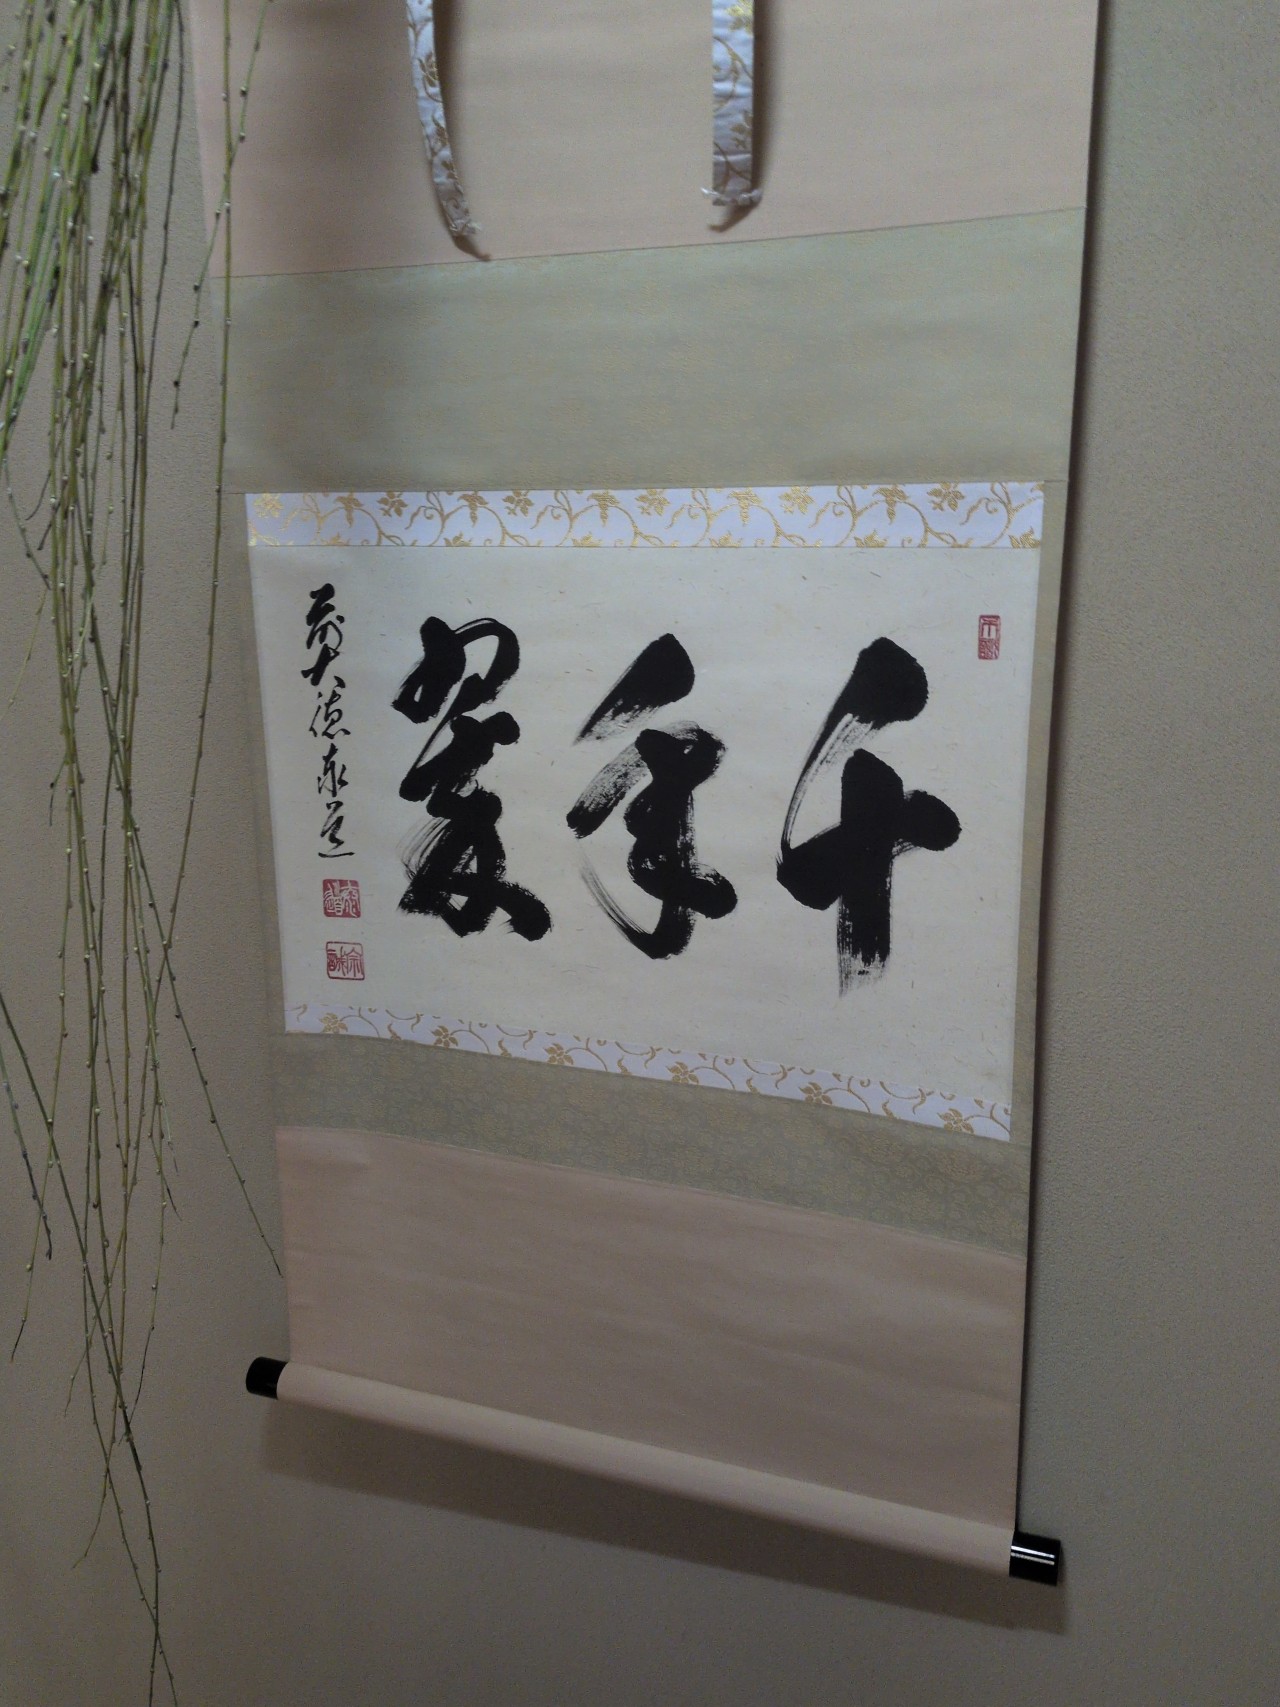 千年翠
前大徳泰道